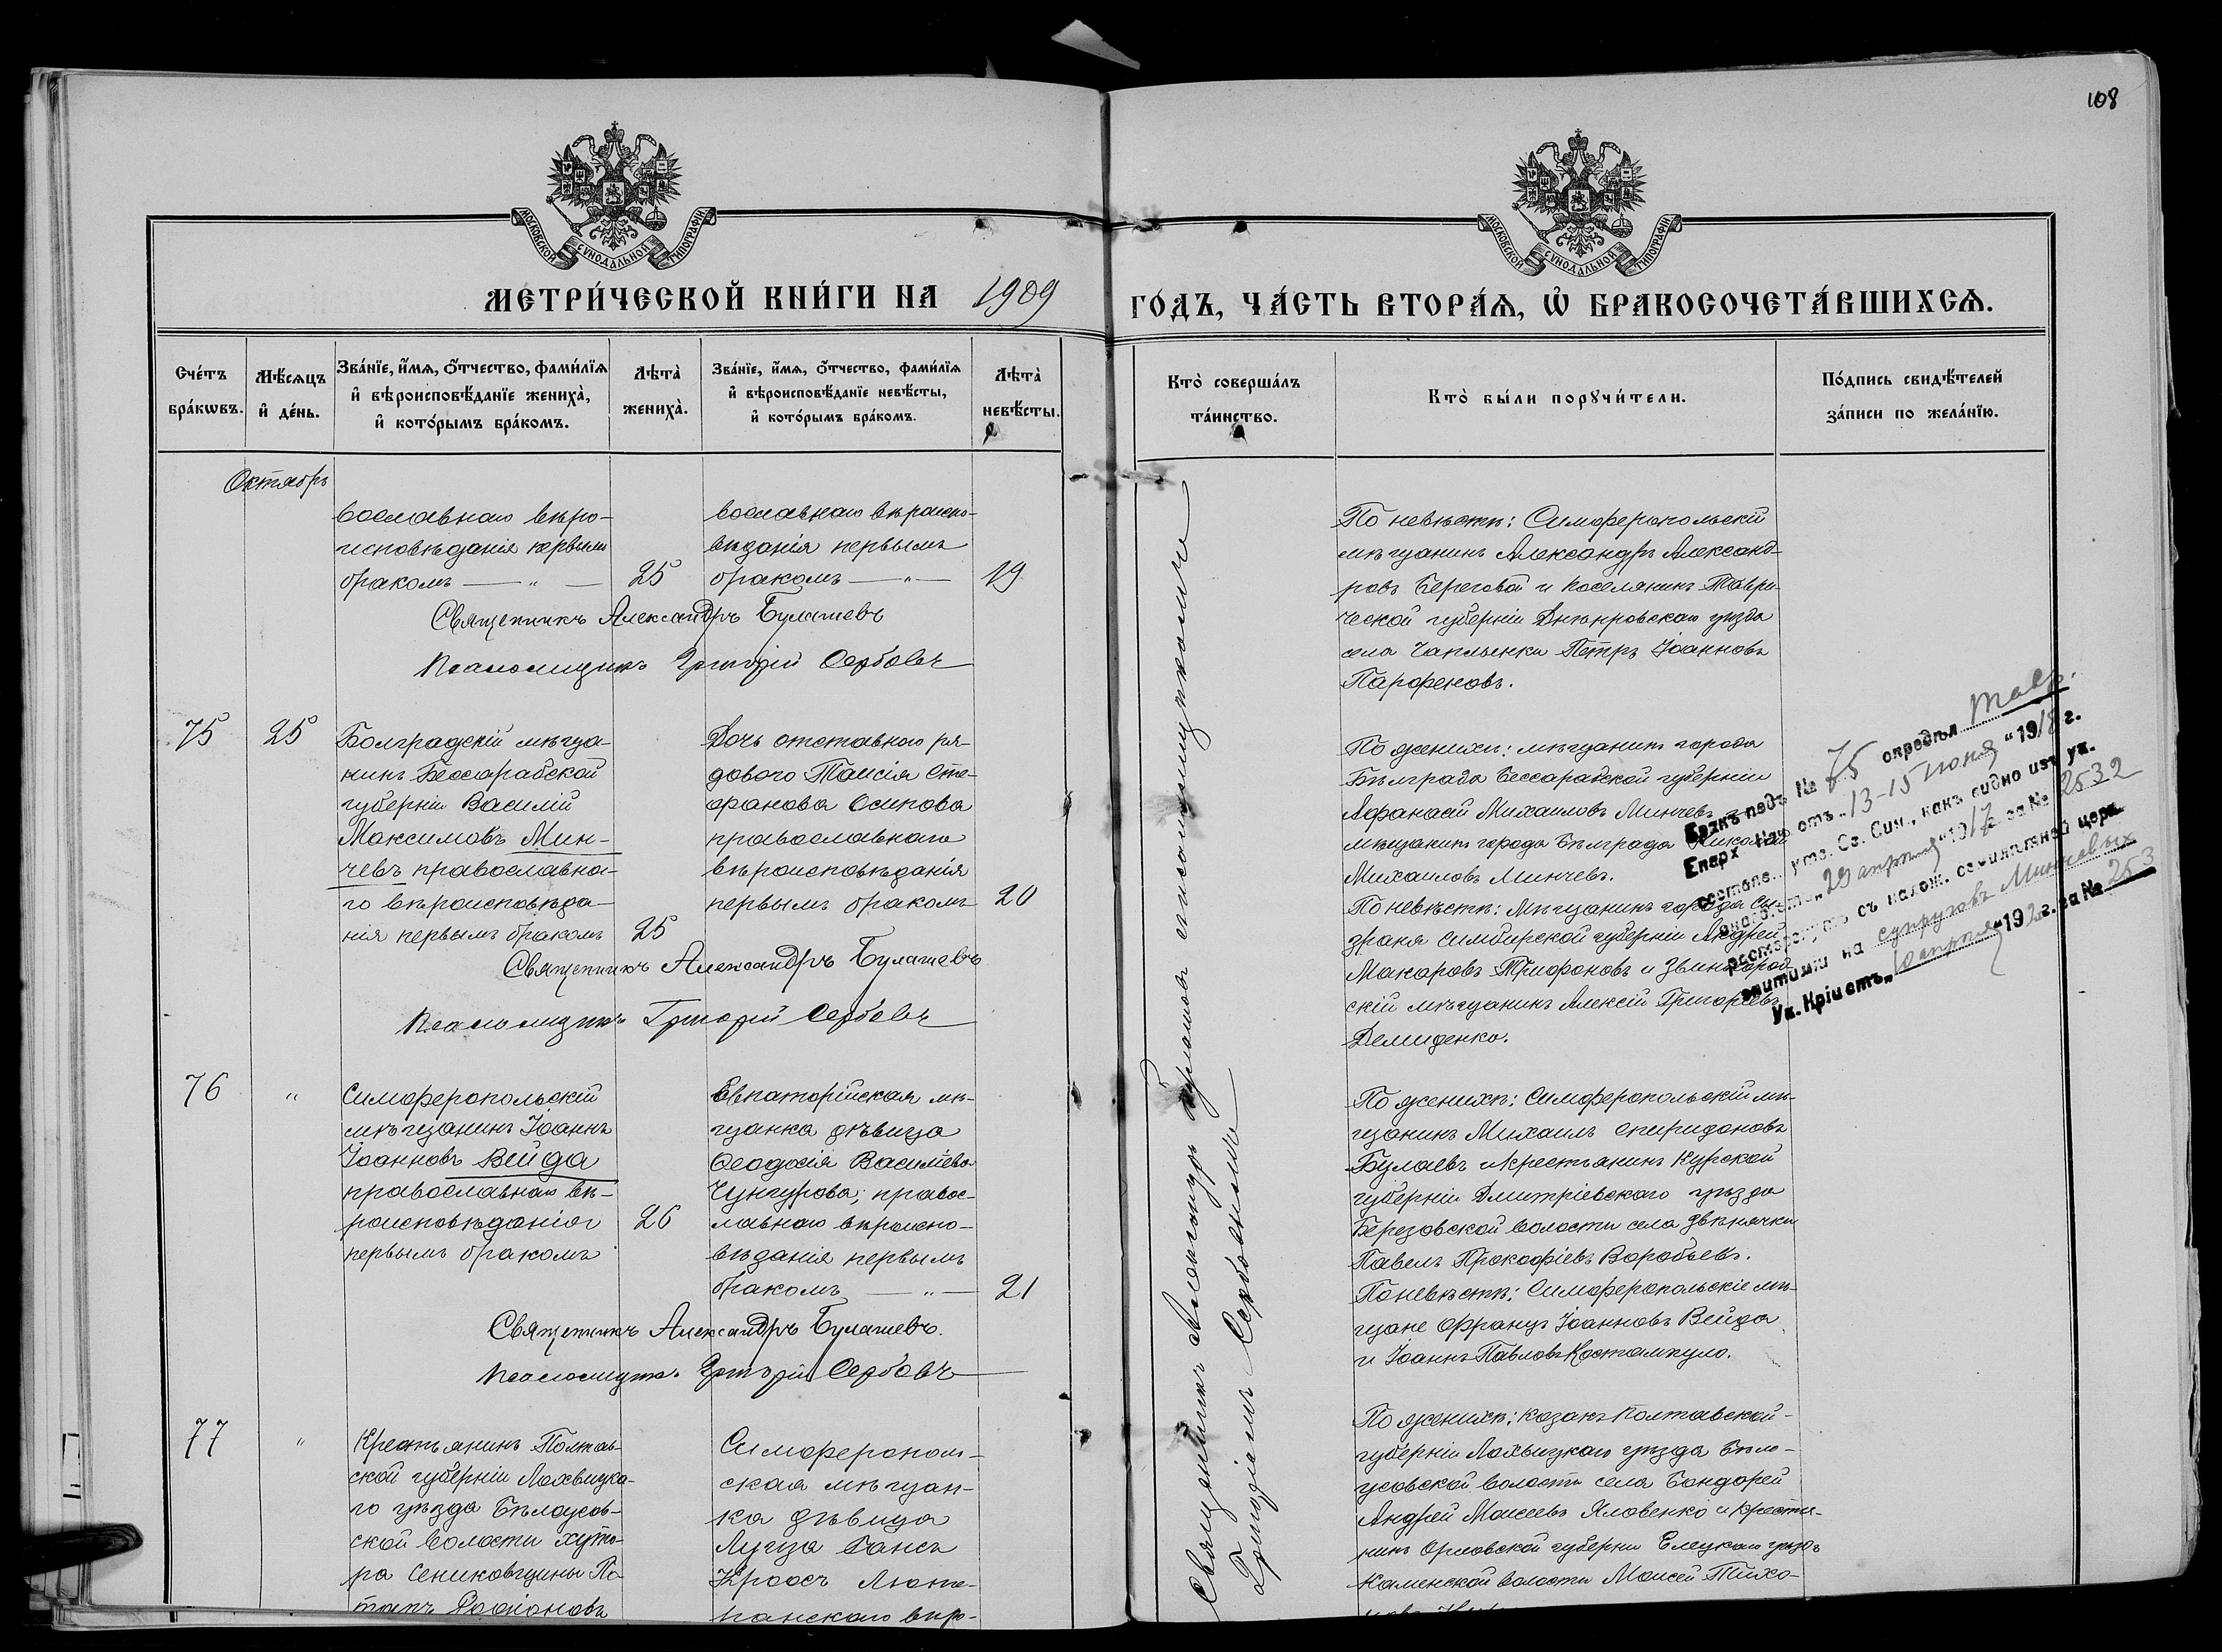 108
МОСКОВСКОЙ СУНОДАЛЬНОЙ ТИПОГРАФІИ
МОСКОВСКОЙ СУНОДАЛЬНОЙ ТИПОГРАФІИ
МЕТРИ́ЧЕСКОЙ КНИ́ГИ НА 1909 ГО́ДЪ, ЧА́СТЬ ВТОРА́Ѧ, Ѡ҆ БРАКОСОЧЕТА́ВШИХСѦ.
Сче́тъ бра́кωвъ.
Мѣ́сѧцъ и҆ де́нь.
Зва́нїе, и҆́мѧ, ѻ҆́тчество, фами́лїѧ
и҆ вѣроисповѣ́данїе жениха̀,
и҆ кото́рымъ бра́комъ.
Лѣта̀ жениха̀.
Зва́нїе, и҆́мѧ, ѻ҆́тчество, фами́лїѧ
и҆ вѣроисповѣ́данїе невѣ́сты,
и҆ кото́рымъ бра́комъ.
Лѣта̀ невѣ́сты.
Кто̀ соверша́лъ
та́инство.
Кто̀ бы́ли порꙋчи́тели.
По́дпись свидѣ́телей
за́писи по жела́нїю.
Октябрь
вославнаго вѣро-
исповѣданія первымъ
бракомъ — " —
25
вославнаго вѣроиспо-
вѣданія первымъ
бракомъ — " —
19
Священникъ Александръ Булашевъ
Псаломщикъ Григорій Сербовъ
По невѣстѣ: Симферопольскій
мѣщанинъ Александръ Александ-
ровъ Береговой и поселянинъ Таври-
ческой губерніи Днѣпровскаго уѣзда
села Чаплынки Петръ Іоанновъ
Парфеновъ.
75
25
Болградскій мѣща-
нинъ Бессарабской
губерніи Василій
Максимовъ Мин-
чевъ православна-
го вѣроисповѣда-
нія первымъ бракомъ
25
Дочь отставного ря-
дового Таисія Сте-
фанова Осипова
православнаго
вѣроисповѣданія
первымъ бракомъ
20
Священникъ Александръ Булашевъ
Псаломщикъ Григорій Сербовъ
По женихѣ: мѣщанинъ города
Бѣлграда Бессарабской губерніи
Афанасій Михаиловъ Минчевъ и
мѣщанинъ города Бѣлграда Николай
Михаиловъ Минчевъ.
По невѣстѣ: Мѣщанинъ города Сы-
зраня Симбирской губерніи Андрей
Макаровъ Трифоновъ и Звиногород-
скій мѣщанинъ Алексій Григорьевъ
Демиденко.
Бракъ подъ № 75 опредѣл Тавр.
Епарх. Нач. отъ „13-15 іюня" 1918 г.
состояв. утв. Св. Син., какъ видно изъ ук.
онаго отъ „29 апрѣля" 1917 г. за № 2532
расторгнутъ съ налож. семилѣтней церк.
епитиміи на супруговъ Минчевыхъ
Ук. Кр. отъ „ апрѣля" 192 г. за № 253
76
"
Симферопольскій
мѣщанинъ Іоаннъ
Іоанновъ Вейда
православнаго вѣ-
роисповѣданія
первымъ бракомъ
26
Евпаторійская мѣ-
щанка дѣвица
Ѳеодосія Васильева
Чунгурова; правос-
лавнаго вѣроиспо-
вѣданія первымъ
бракомъ — " —
21
Священникъ Александръ Булашевъ.
Псаломщикъ Григорій Сербовъ
По женихѣ: Симферопольскій мѣ-
щанинъ Михаилъ Спиридоновъ
Булаевъ и крестьянинъ Курской
губерніи Дмитріевскаго уѣзда
Березовской волости села Двѣнячки
Павелъ Прокофіевъ Воробьевъ.
По невѣстѣ: Симферопольскіе мѣ-
щане Францъ Іоанновъ Вейда
и Іоаннъ Павловъ Костампуло.
77
"
Крестьянинъ Полтав-
ской губерніи Лохвицка-
го уѣзда Бѣлоусов-
ской волости хуто-
ра Сениковщины По-
тапъ Родіоновъ
Симферополь-
ская мѣщан-
ка дѣвица
Луиза Гансъ
Кроосъ Люте-
ранскаго вѣро-
По женихѣ: казакъ Полтавской
губерніи Лохвицкаго уѣзда Бѣло-
усовской волости села Бондарей
Андрей Моисеевъ Яловенко и крестья-
нинъ Орловской губерніи Елецкаго уѣзда
Каменской волости Моисей Тихо-
Священникъ Александръ Булашевъ съ псаломщикомъ
Григоріемъ Сербовымъ